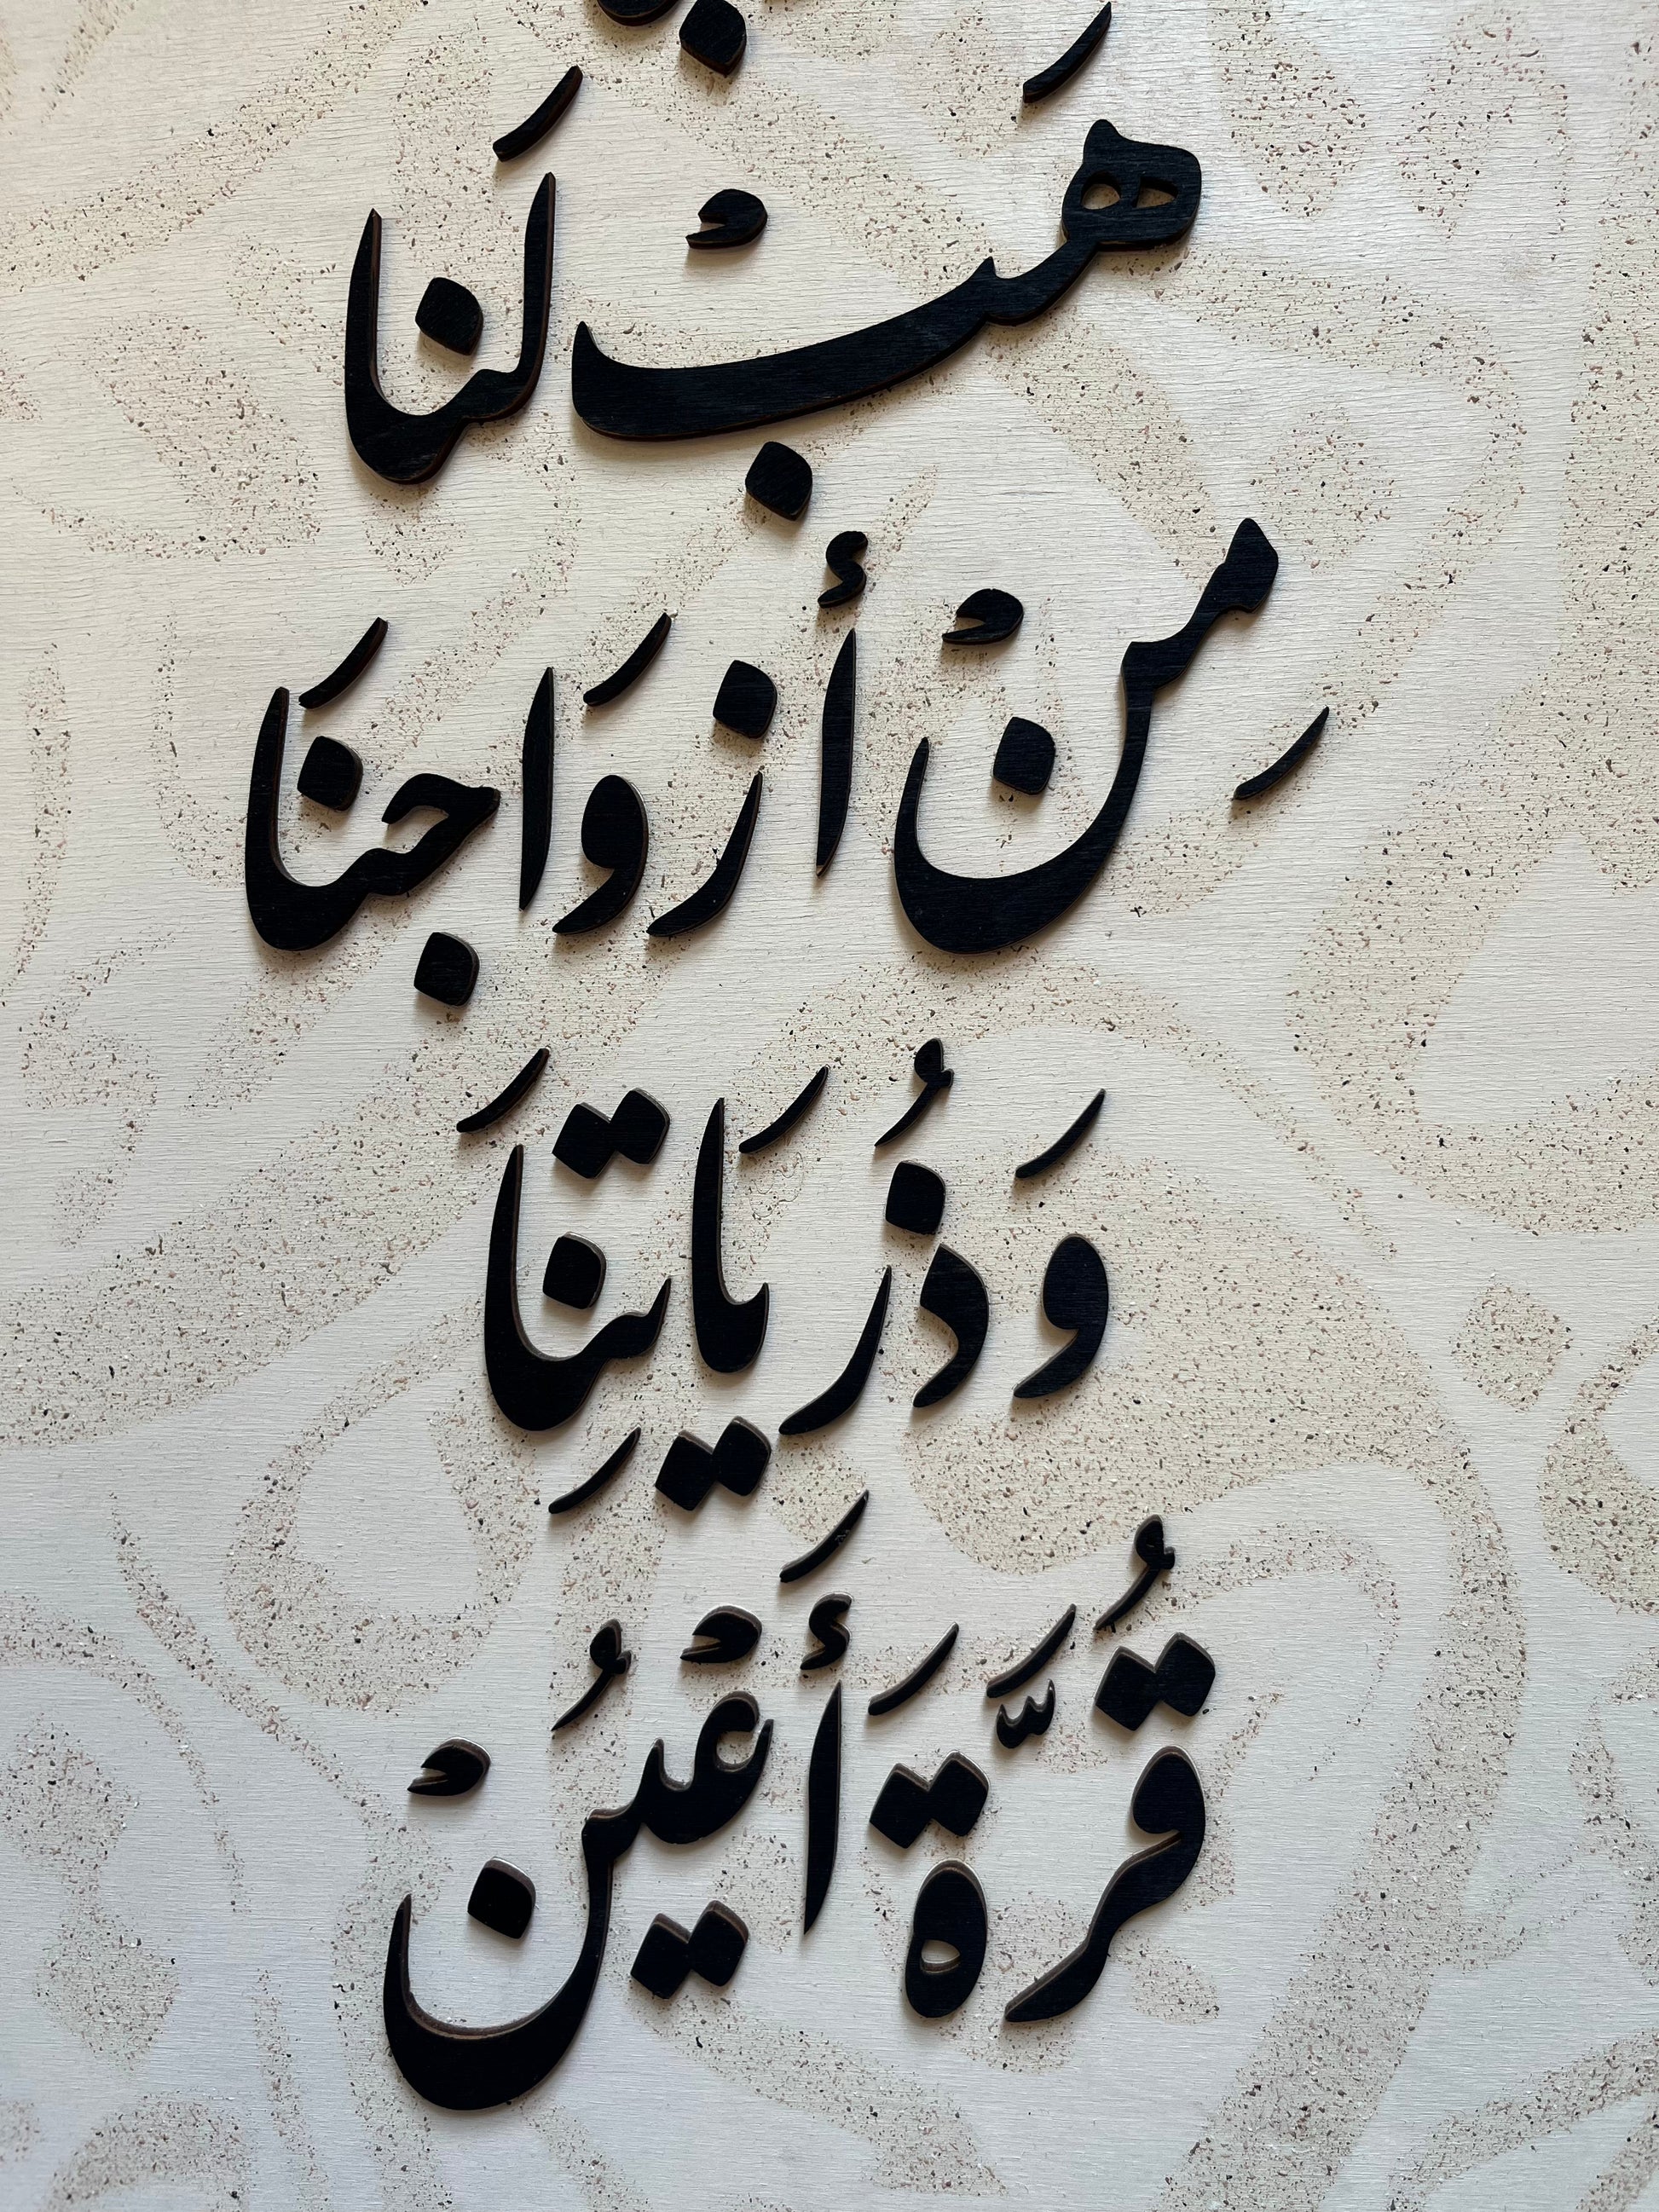 هَبْ لَنَا
مِنْ أزوَاجنَا
وَذُريَاتِنَا
قُرَّةَ أَعْيُنْ